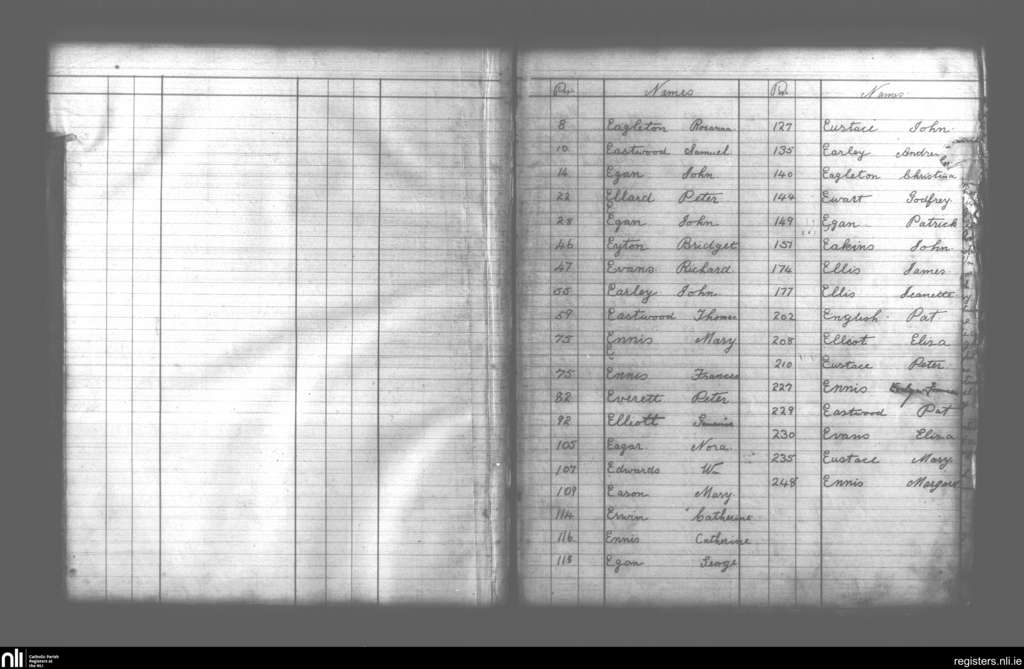 Names
Names
8 Eagleton Rosanna
10 Eastwood Samuel
14 Egan John
22 Ellard Peter
28 Egan John
46 Eyton Bridget
47 Evans Richard
55 Earley John
59 Eastwood Thomas
75 Ennis Mary
75 Ennis Frances
82 Everett Peter
92 Elliott
105 Eagar Nora
107 Edwards Wm
109 Eason Mary
114 Erwin Catherine
116 Ennis Catherine
118 Egan George
127 Eustace John
135 Earley Andrew
140 Eagleton Christina
144 Ewart Godfrey
149 Egan Patrick
157 Eakins John
174 Ellis James
177 Ellis Jeanette
202 English Pat
208 Ellcot Eliza
210 Eustace Peter
227 Ennis
229 Eastwood Pat
230 Evans Eliza
235 Eustace Mary
248 Ennis Margaret
nli Catholic Parish
Registers at
the NLI
registers.nli.ie